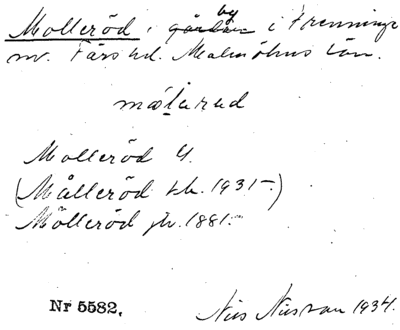 Molleröd, by i Frenninge
sn. Färs hd. Malmöhus län.
mɷlarud
Molleröd Y.
(Målleröd tk. 1931-)
Mölleröd jb. 1881.
Nr 5582.
Nils 1934.